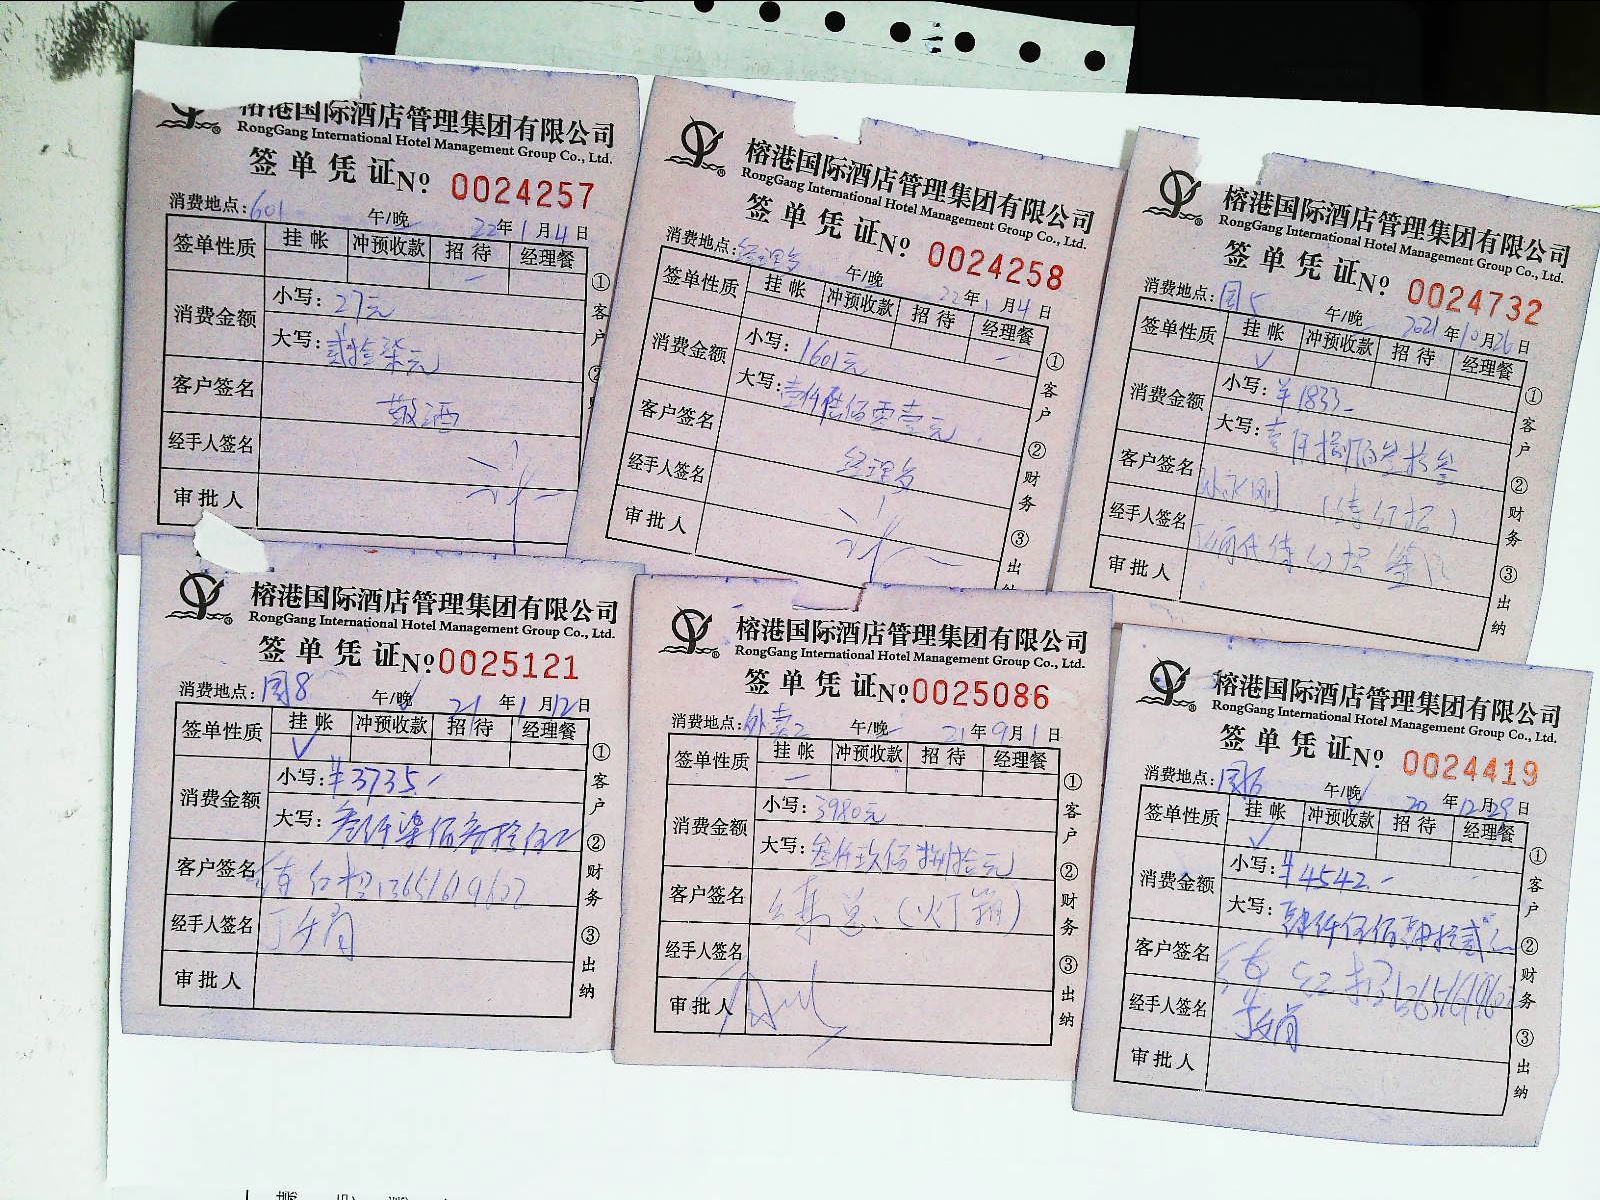 榕港国际酒店管理集团有限公司
RongGang International Hotel Management Group Co., Ltd.
签单凭证 No 0024257
消费地点:601 午/晚 22年1月4日
签单性质 挂帐 冲预收款 招待 经理餐
消费金额 小写:27元
大写:贰拾柒元
客户签名 敬酒
经手人签名
审批人
①客户 ②财
榕港国际酒店管理集团有限公司
RongGang International Hotel Management Group Co., Ltd.
签单凭证 No 0024258
消费地点:经理 午/晚 22年1月4日
签单性质 挂帐 冲预收款 招待 经理餐
消费金额 小写:1601元
大写:壹仟陆佰零壹元
客户签名 经理
经手人签名
审批人
①客户 ②财务 ③出纳
榕港国际酒店管理集团有限公司
RongGang International Hotel Management Group Co., Ltd.
签单凭证 No 0024732
消费地点:园5 午/晚 2021年10月26日
签单性质 挂帐 冲预收款 招待 经理餐
✓
消费金额 小写:¥1833-
大写:壹仟捌佰叁拾叁
客户签名
经手人签名
审批人
①客户 ②财务 ③出纳
榕港国际酒店管理集团有限公司
RongGang International Hotel Management Group Co., Ltd.
签单凭证 No 0025121
消费地点:园8 午/晚 21年1月12日
签单性质 挂帐 冲预收款 招待 经理餐
✓
消费金额 小写:¥3735-
大写:叁仟柒佰叁拾伍元
客户签名 13651619622
经手人签名
审批人
①客户 ②财务 ③出纳
榕港国际酒店管理集团有限公司
RongGang International Hotel Management Group Co., Ltd.
签单凭证 No 0025086
消费地点:外卖2 午/晚 21年9月1日
签单性质 挂帐 冲预收款 招待 经理餐
消费金额 小写:3980元
大写:叁仟玖佰捌拾元
客户签名
经手人签名
审批人
①客户 ②财务 ③出纳
榕港国际酒店管理集团有限公司
RongGang International Hotel Management Group Co., Ltd.
签单凭证 No 0024419
消费地点: 午/晚 20年12月29日
签单性质 挂帐 冲预收款 招待 经理餐
✓
消费金额 小写:¥4542-
大写:肆仟伍佰肆拾贰元
客户签名
经手人签名
审批人
①客户 ②财务 ③出纳